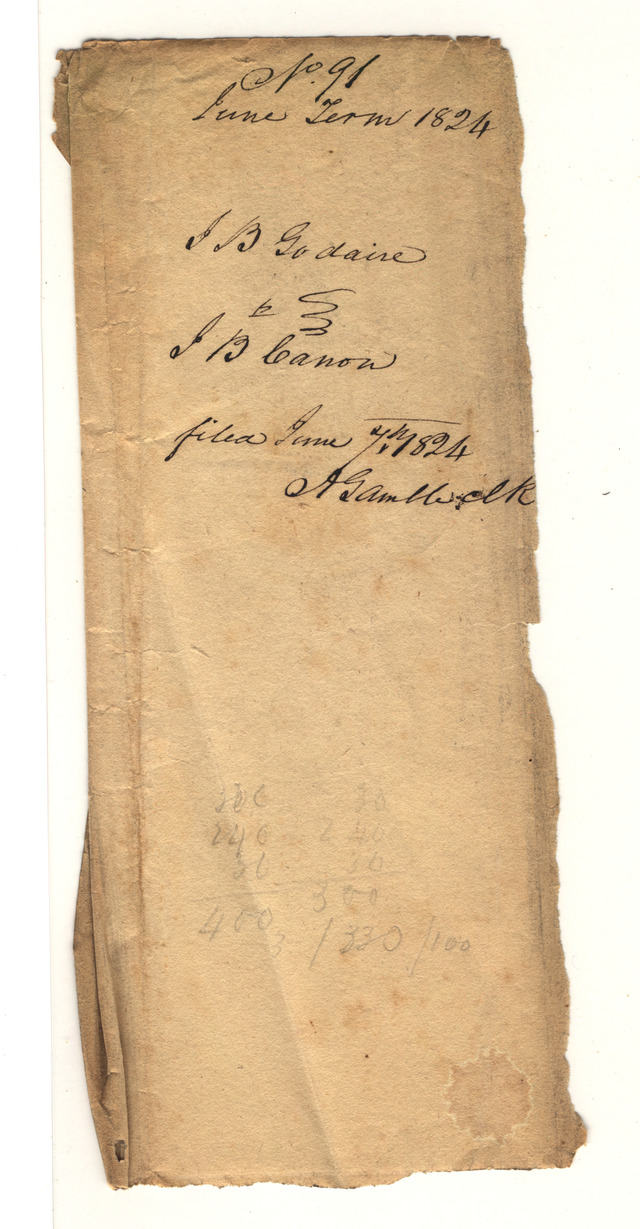 No. 91
June Term 1824
J B Godaire
J B Canon
filed June 7th 1824
A Gamble clk
30
240 240
30 30
400 300
3 /330 /100